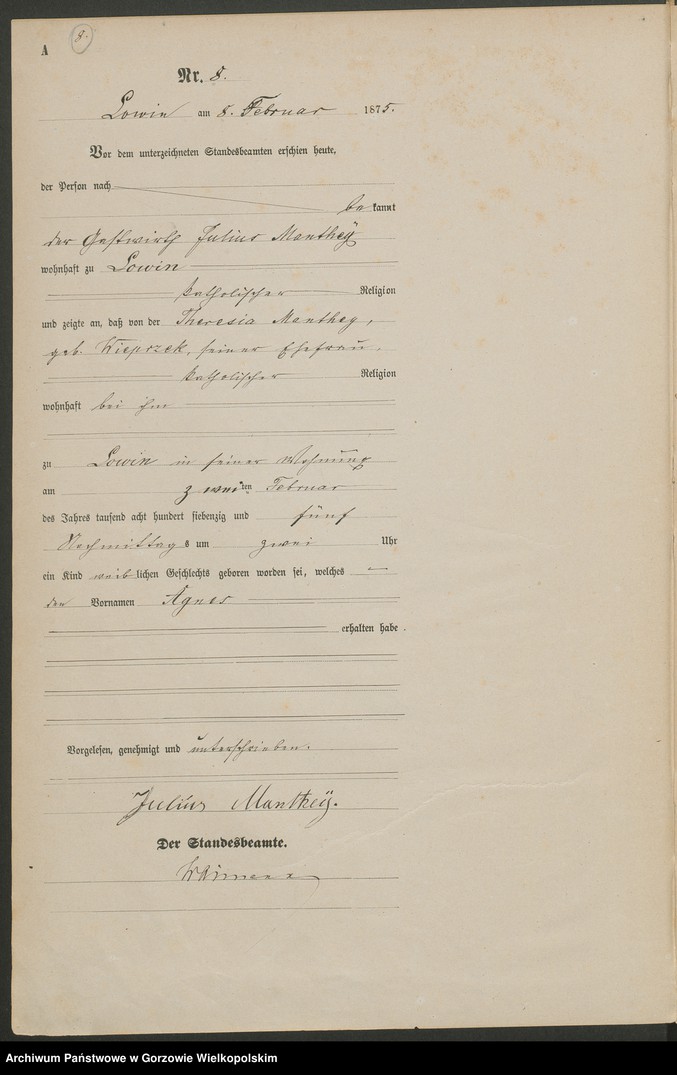 A
8.
Nr. 8.
Lowin am 8. Februar 1875.
Vor dem unterzeichneten Standesbeamten erschien heute,
der Person nach
be kannt
der Gastwirth Julius Manthey
wohnhaft zu Lowin
katholischer Religion
und zeigte an, daß von der Theresia Manthey,
geb. Wieprzek, seiner Ehefrau,
katholischer Religion
wohnhaft bei ihm
zu Lowin in seiner Wohnung
am zwei ten Februar
des Jahres tausend acht hundert siebenzig und fünf
Nachmittag s um zwei Uhr
ein Kind weib lichen Geschlechts geboren worden sei, welches
den Vornamen Agnes
erhalten habe.
Vorgelesen, genehmigt und unterschrieben.
Julius Manthey.
Der Standesbeamte.
Archiwum Państwowe w Gorzowie Wielkopolskim